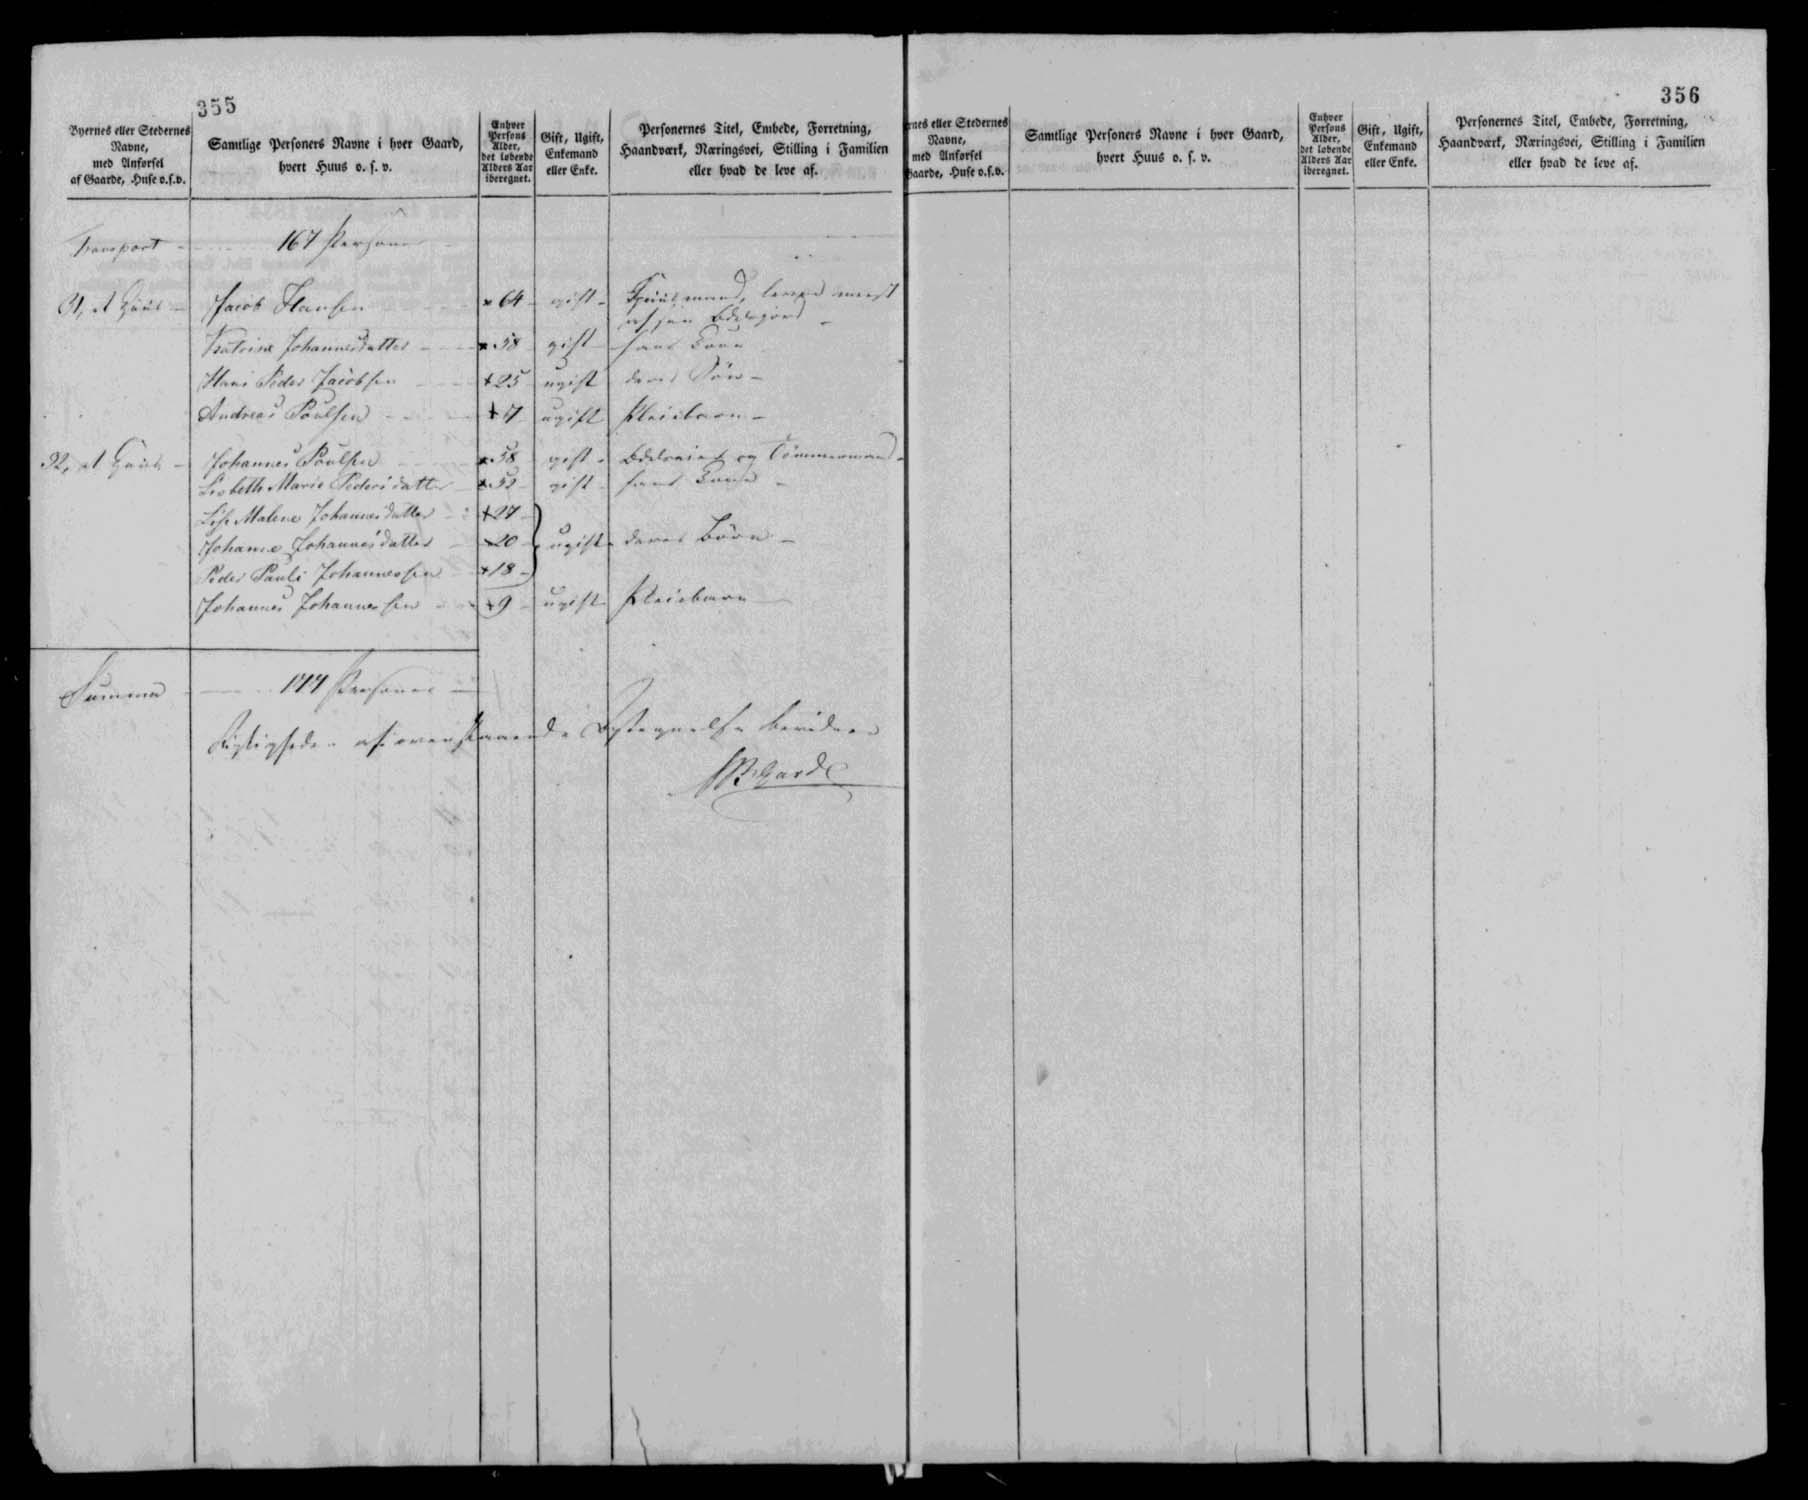 355
Byernes eller Stedernes
Navne,
med Anførsel
af Gaarde, Huse o.s.v.
Samtlige Personers Navne i hver Gaard,
hvert Huus o. s. v.
Enhver
Persons
Alder,
det løbende
Alders Aar
iberegnet.
Gift, Ugift,
Enkemand
eller Enke.
Personernes Titel, Embede, Forretning,
Haandværk, Næringsvei, Stilling i Familien
eller hvad de leve af.
Transport 167 Personer
31, et Huus Jacob Hansen 64 gift Huusmand, lever meest
af sin
Katrine Johannesdatter 58 gift hans Kone
Hans Peder Jacobsen 25 ugift deres Søn
Andreas Poulsen 7 ugift Pleiebarn
32, et Huus Johannes Poulsen 58 gift og Tømmermand
Lisbeth Marie Pedersdatter 52 gift hans Kone
Lise Malene Johannesdatter 27
Johanne Johannesdatter 20 ugift deres Børn
Peder Pauli Johannessen 18
Johannes Johannessen 9 ugift Pleiebarn
Summa 177 Personer
Rigtigheden af ovenstaaende Optegnelse bevidner
356
rnes eller Stedernes
Navne,
med Anførsel
Gaarde, Huse o.s.v.
Samtlige Personers Navne i hver Gaard,
hvert Huus o. s. v.
Enhver
Persons
Alder,
det løbende
Alders Aar
iberegnet.
Gift, Ugift,
Enkemand
eller Enke.
Personernes Titel, Embede, Forretning,
Haandværk, Næringsvei, Stilling i Familien
eller hvad de leve af.